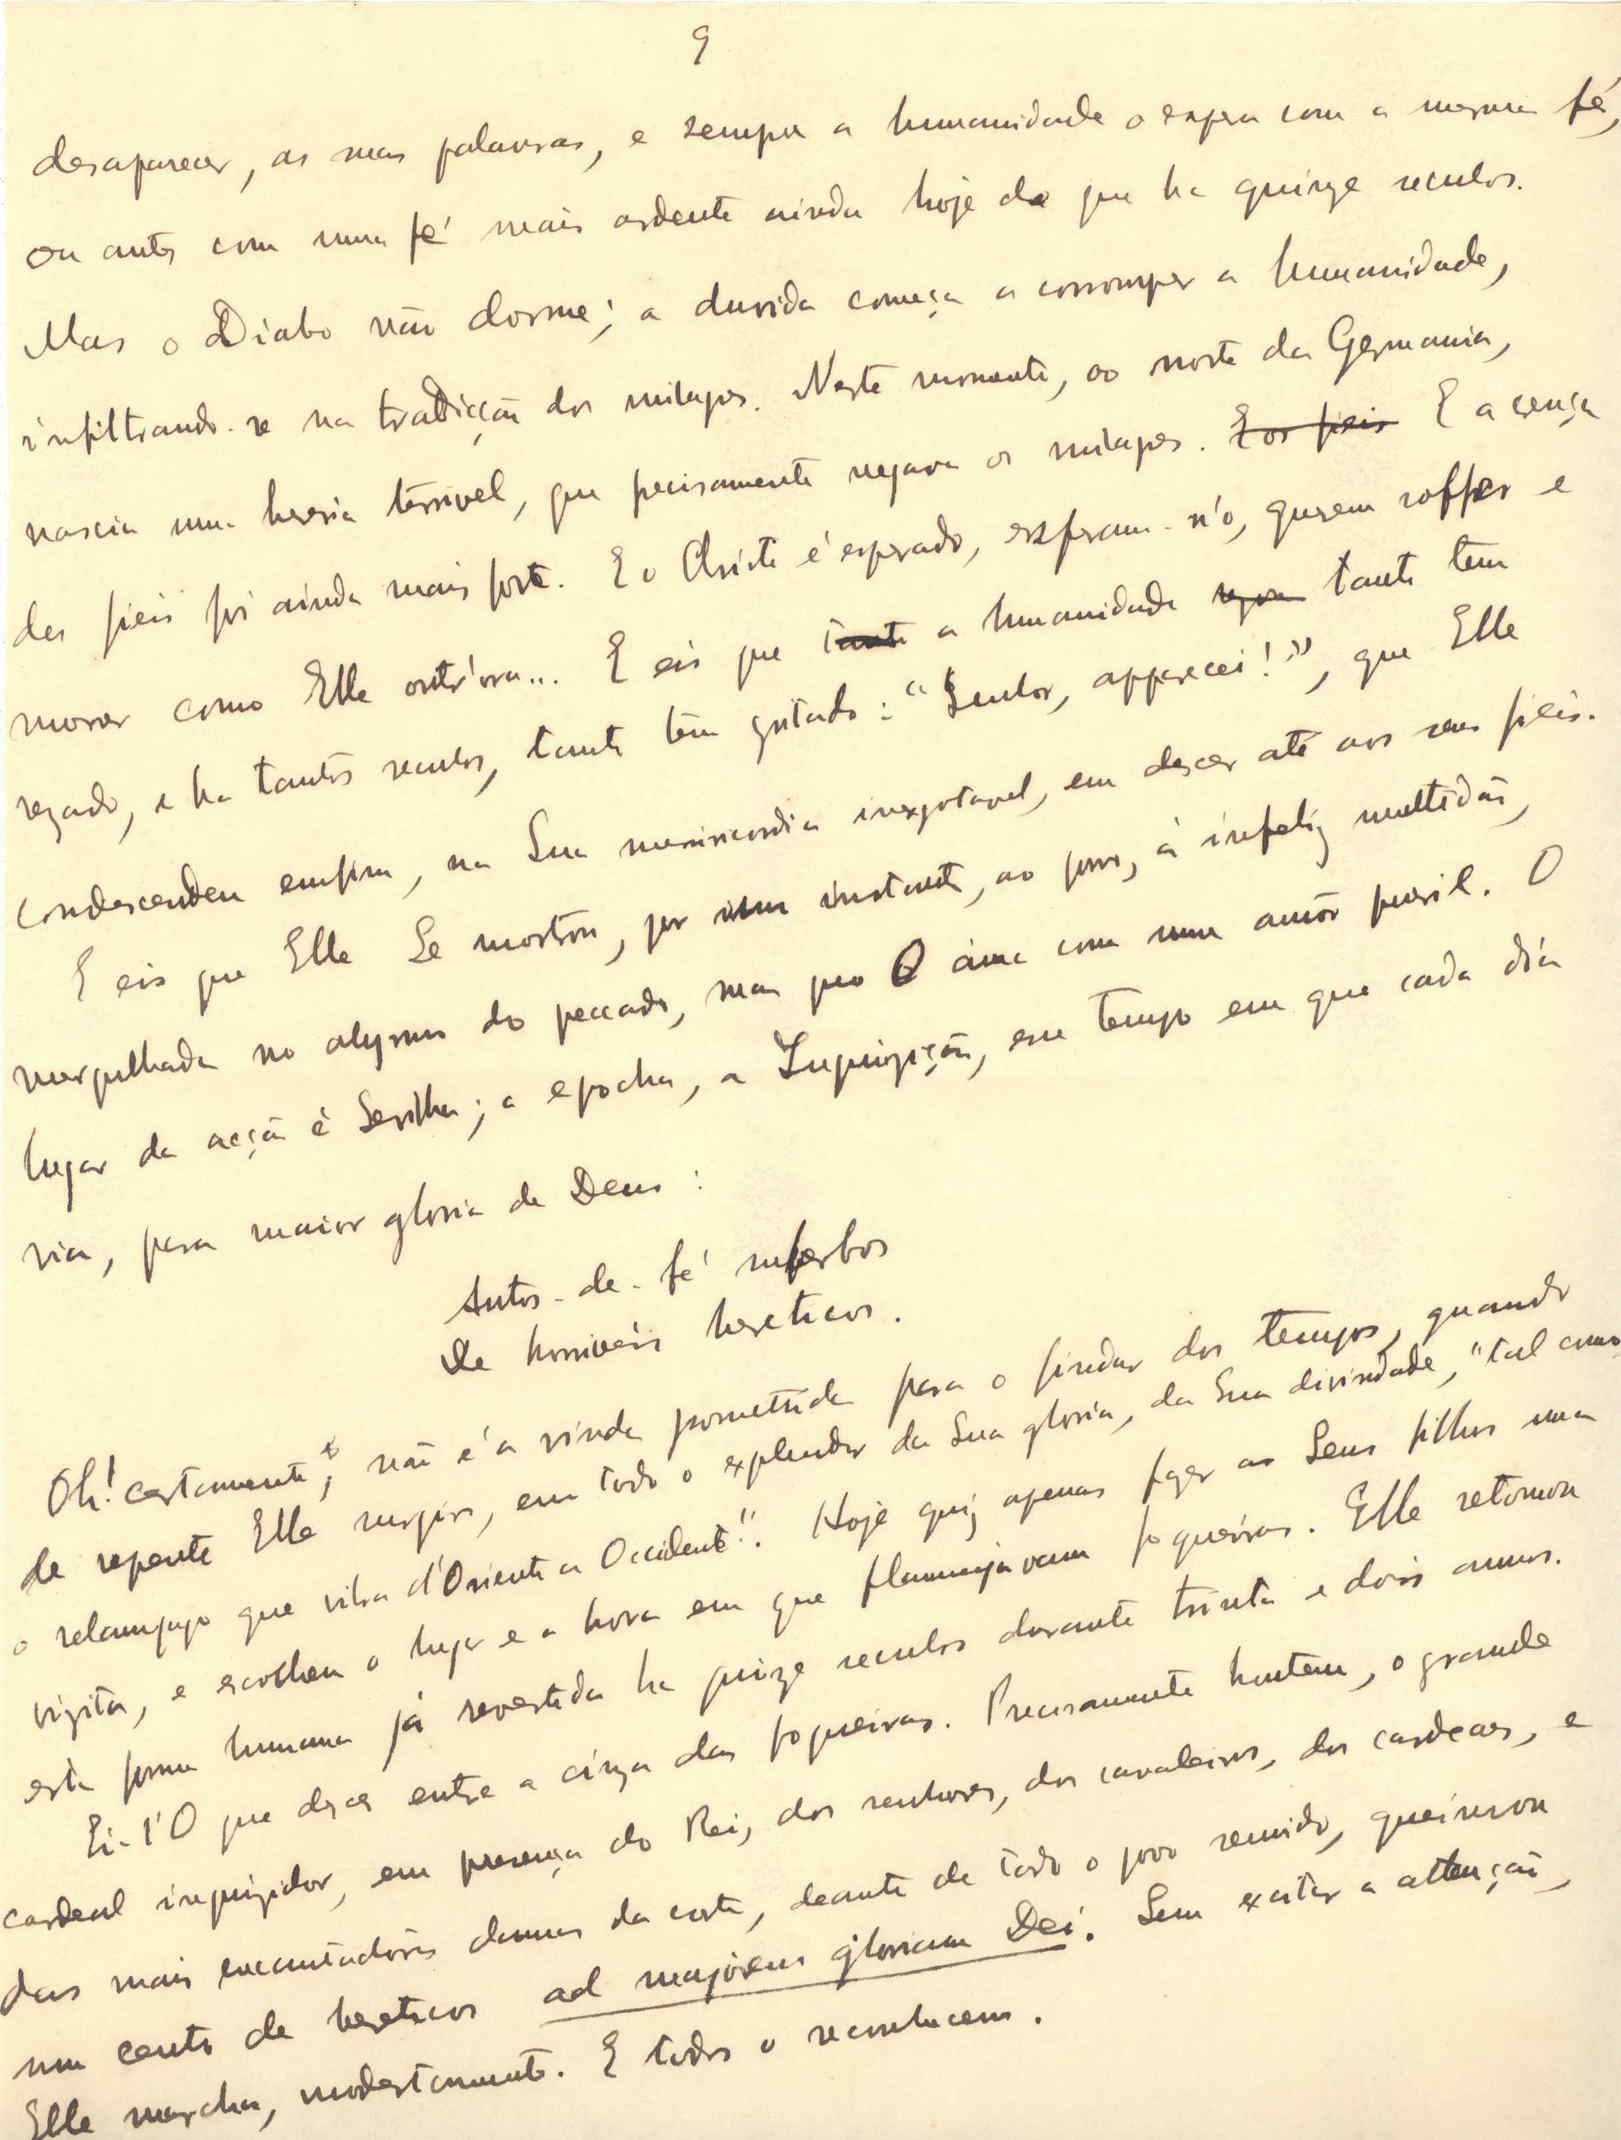 9
desaparecer, as suas palavras, e sempre a humanidade o espera com a mesma fé,
ou antes com uma fé mais ardente ainda hoje do que ha quinze seculos.
Mas o Diabo não dorme; a duvida começa a corromper a humanidade,
infiltrando-se na tradicção dos milagres. Neste momento, ao norte da Germania,
nascia uma heresia terrivel, que precisamente negava os milagres. E os fieis E a crença
dos fieis foi ainda mais forte. E o Christo é esperado, esperam-n'o, querem soffrer e
morrer como Elle outr'ora... E eis que tanto a humanidade tanto tem
rezado, e ha tantos seculos, tanto tem gritado: "Senhor, apparecei!", que Elle
condescendeu emfim, na Sua misericordia inexgotavel, em descer até aos seus fieis.
E eis que Elle Se mostrou, por um instante, ao povo, á infeliz multidão,
mergulhada no abysmo do peccado, mas que O ama com um amor pueril. O
lugar da acção é Sevilha; a epocha, a Inquizição, esse tempo em que cada dia
via, para maior gloria de Deus:
Autos-de-fé superbos
De horriveis hereticos.
Oh! certamente, não é a vinda promettida para o findar dos tempos, quando
de repente Elle surgir, em todo o explendor da Sua gloria, da Sua divindade, "tal como
o relampago que vibra d'Oriente a Occidente". Hoje quiz apenas fazer aos Seus filhos uma
vizita, e escolheu o lugar e a hora em que flammejavam fogueiras. Elle retomou
esta forma humana já revestida ha quinze seculos durante trinta e dois annos.
Ei-l'O que desce entre a cinza das fogueiras. Precisamente hontem, o grande
cardeal inquizidor, em presença do Rei, dos senhores, dos cavaleiros, dos cardeaes, e
das mais encantadôras damas da corte, deante de todo o povo reunido, queimou
um cento de hereticos ad majorem gloriam Dei. Sem excitar a attenção,
Elle marcha, modestamente. E todos o reconhecem.